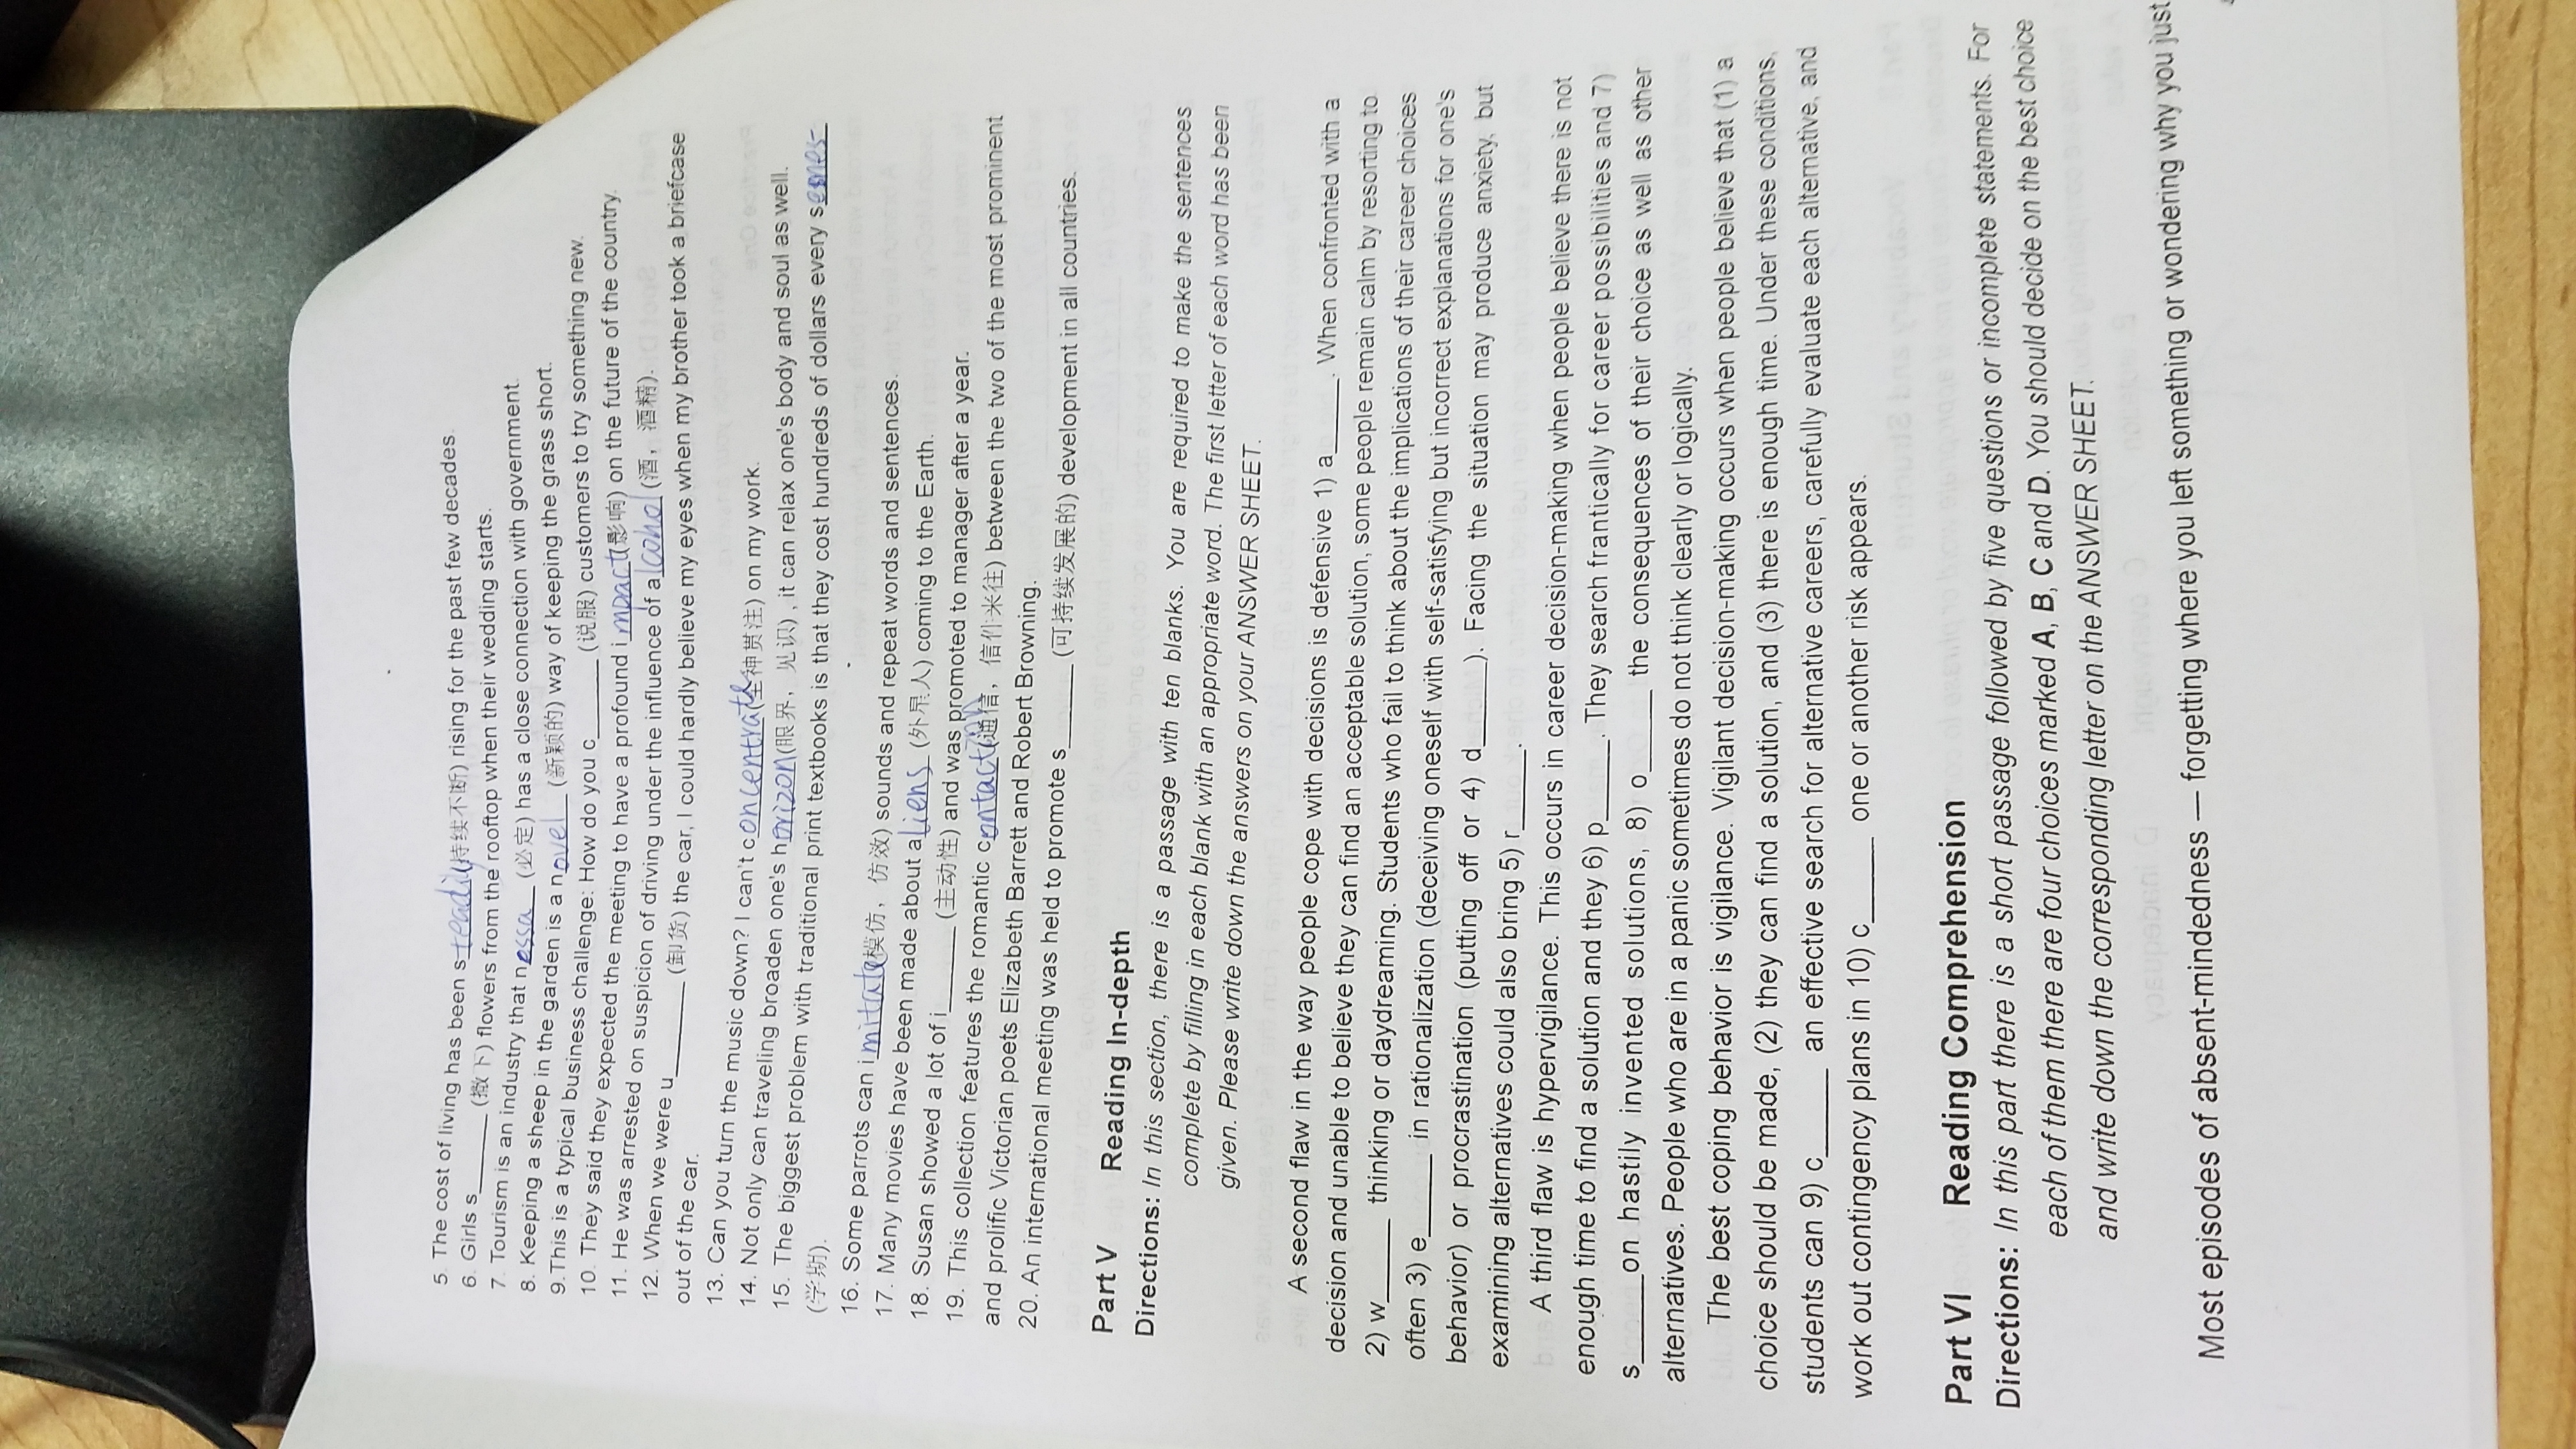 5. The cost of living has been steadily (持续不断) rising for the past few decades.
6. Girls s______ (撒下) flowers from the rooftop when their wedding starts.
7. Tourism is an industry that nessa (必定) has a close connection with government.
8. Keeping a sheep in the garden is a novel (新颖的) way of keeping the grass short.
9.This is a typical business challenge: How do you c______ (说服) customers to try something new.
10. They said they expected the meeting to have a profound impact (影响) on the future of the country.
11. He was arrested on suspicion of driving under the influence of alcohol (酒，酒精).
12. When we were u______ (卸货) the car, I could hardly believe my eyes when my brother took a briefcase
out of the car.
13. Can you turn the music down? I can't concentrate (全神贯注) on my work.
14. Not only can traveling broaden one's horizon (眼界，见识) , it can relax one's body and soul as well.
15. The biggest problem with traditional print textbooks is that they cost hundreds of dollars every semes
(学期).
16. Some parrots can imitate (模仿，仿效) sounds and repeat words and sentences.
17. Many movies have been made about aliens (外星人) coming to the Earth.
18. Susan showed a lot of i______ (主动性) and was promoted to manager after a year.
19. This collection features the romantic contaction (通信，信件来往) between the two of the most prominent
and prolific Victorian poets Elizabeth Barrett and Robert Browning.
20. An international meeting was held to promote s______ (可持续发展的) development in all countries.
Part V Reading In-depth
Directions: In this section, there is a passage with ten blanks. You are required to make the sentences
complete by filling in each blank with an appropriate word. The first letter of each word has been
given. Please write down the answers on your ANSWER SHEET.
A second flaw in the way people cope with decisions is defensive 1) a______. When confronted with a
decision and unable to believe they can find an acceptable solution, some people remain calm by resorting to
2) w______ thinking or daydreaming. Students who fail to think about the implications of their career choices
often 3) e______ in rationalization (deceiving oneself with self-satisfying but incorrect explanations for one's
behavior) or procrastination (putting off or 4) d______). Facing the situation may produce anxiety, but
examining alternatives could also bring 5) r______.
A third flaw is hypervigilance. This occurs in career decision-making when people believe there is not
enough time to find a solution and they 6) p______. They search frantically for career possibilities and 7)
s______on hastily invented solutions, 8) o______ the consequences of their choice as well as other
alternatives. People who are in a panic sometimes do not think clearly or logically.
The best coping behavior is vigilance. Vigilant decision-making occurs when people believe that (1) a
choice should be made, (2) they can find a solution, and (3) there is enough time. Under these conditions,
students can 9) c______ an effective search for alternative careers, carefully evaluate each alternative, and
work out contingency plans in 10) c______ one or another risk appears.
Part VI Reading Comprehension
Directions: In this part there is a short passage followed by five questions or incomplete statements. For
each of them there are four choices marked A, B, C and D. You should decide on the best choice
and write down the corresponding letter on the ANSWER SHEET.
Most episodes of absent-mindedness — forgetting where you left something or wondering why you just